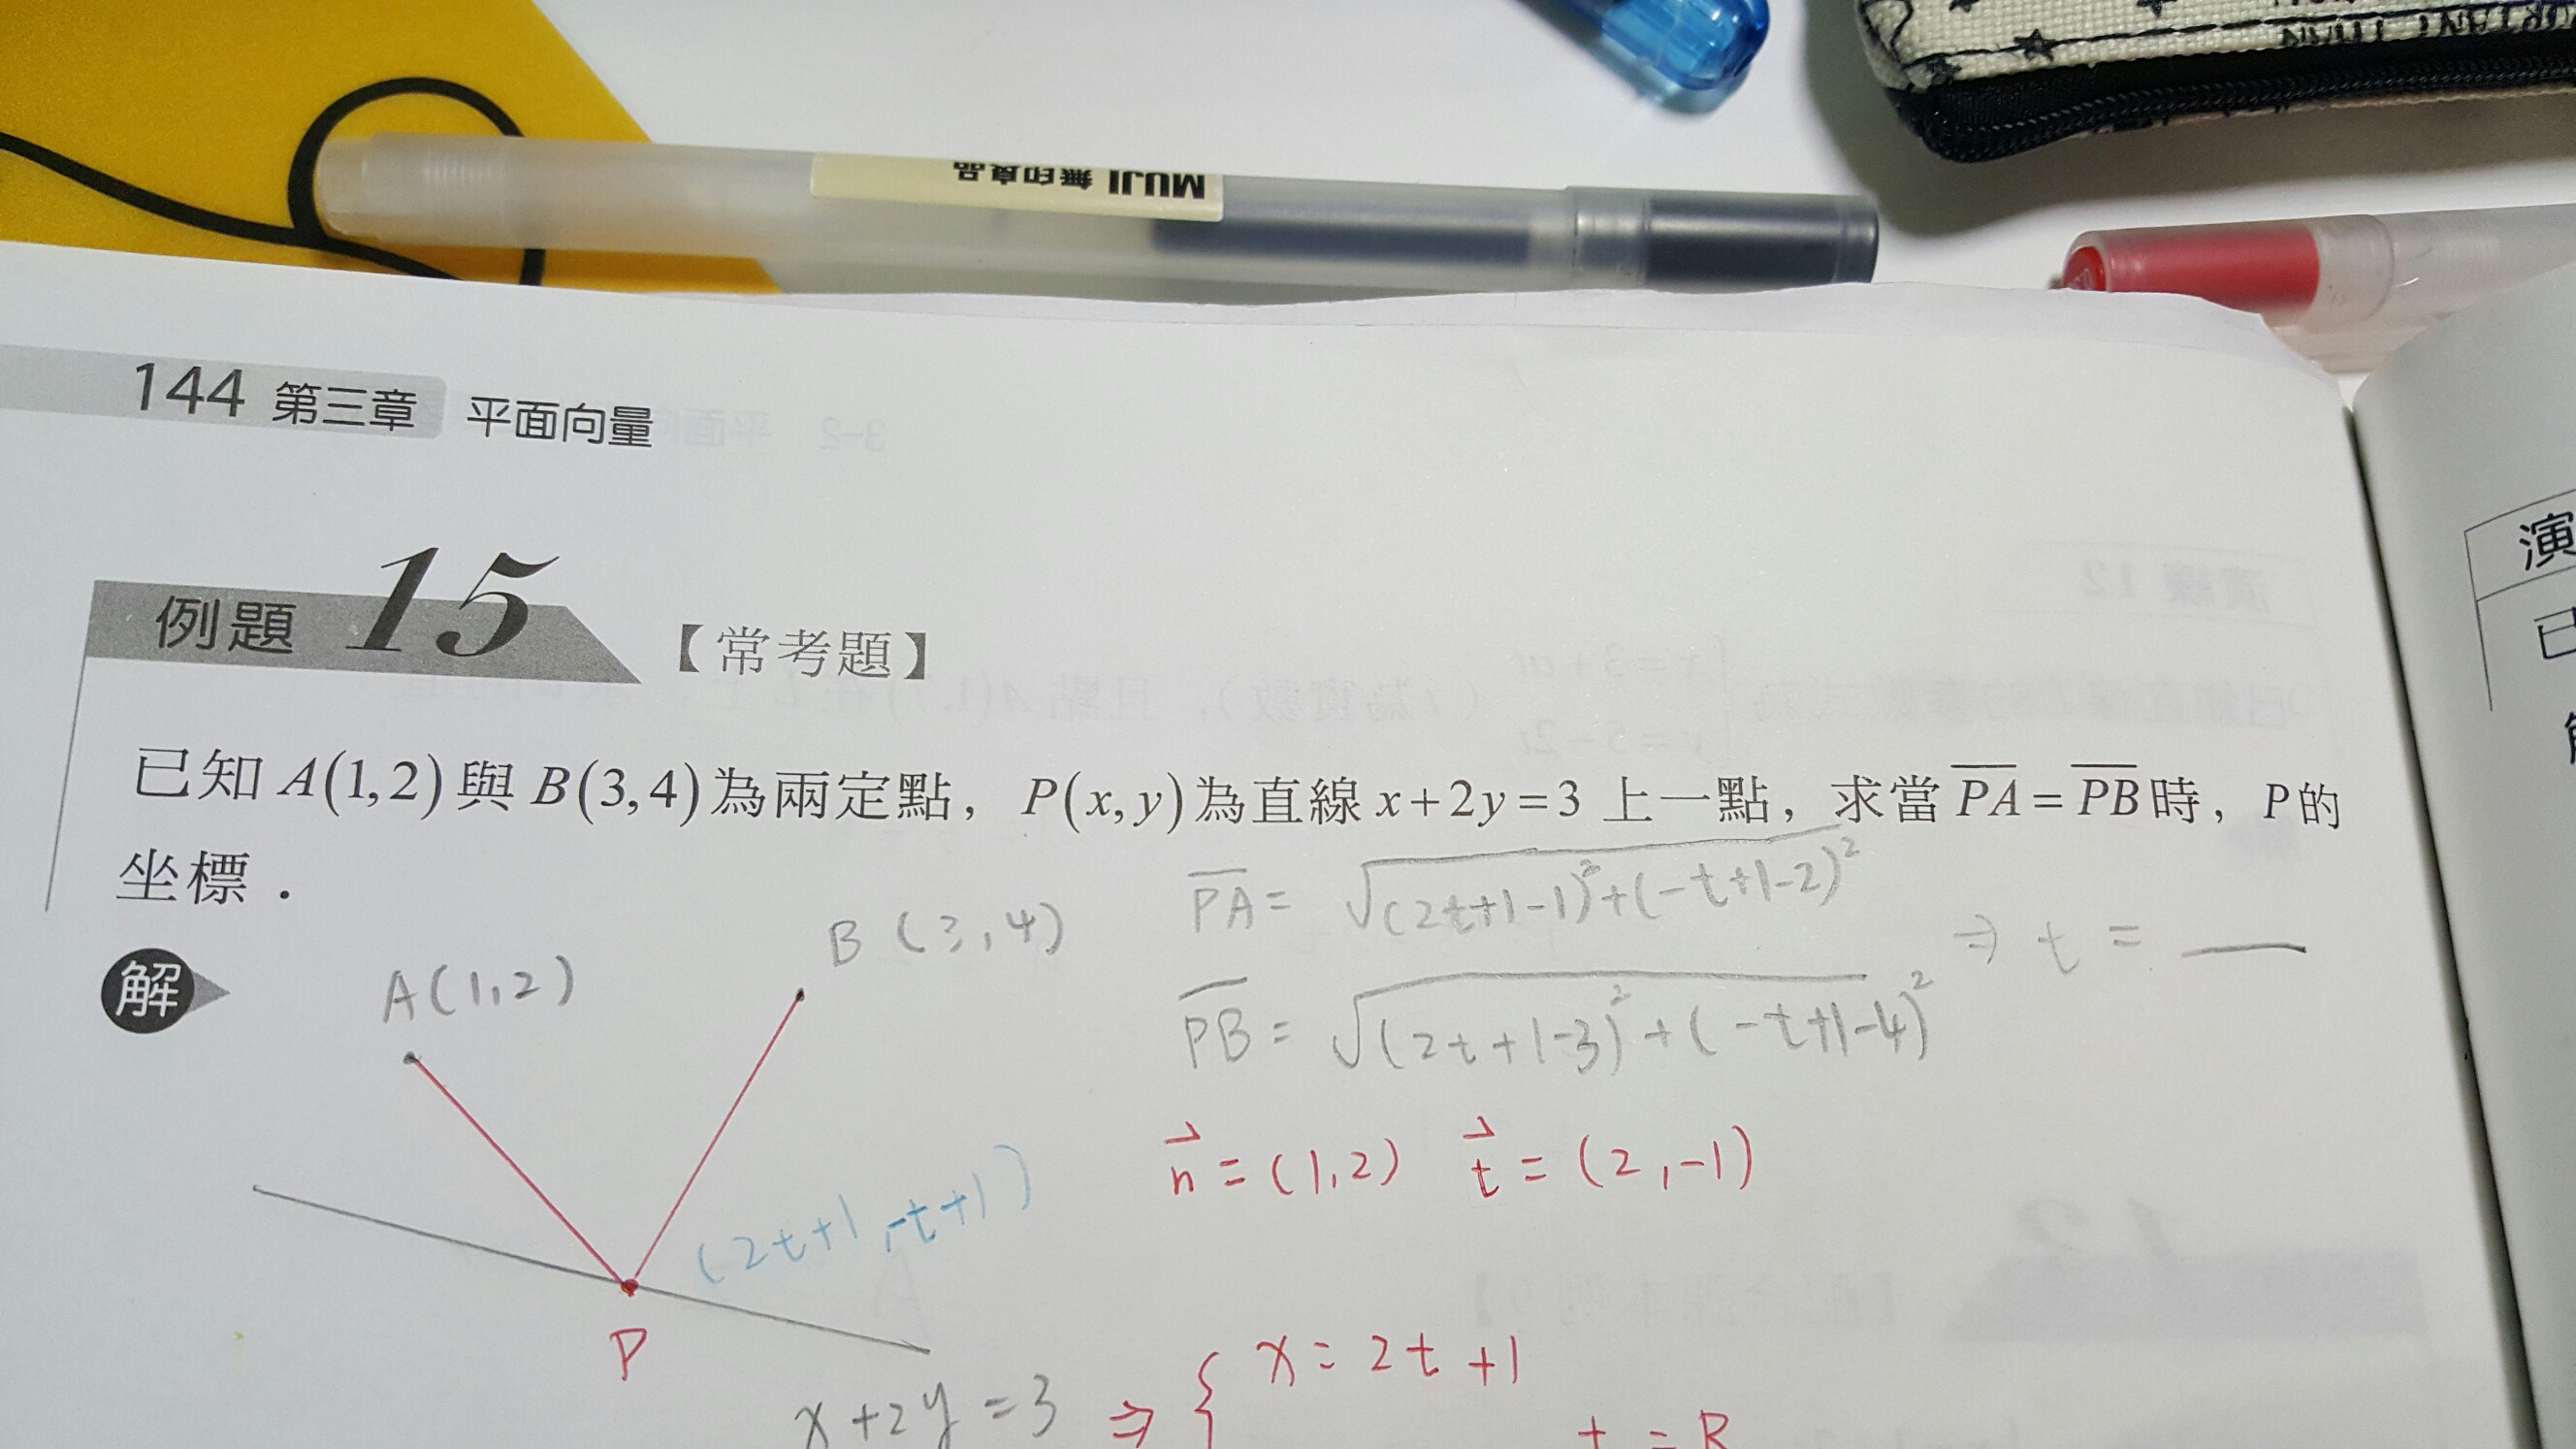 RTANT THAN
MUJI 無印良品
144 第三章 平面向量
例題 15 【常考題】
已知 A(1,2) 與 B(3,4) 為兩定點，P(x,y) 為直線 x+2y=3 上一點，求當 \overline{PA} = \overline{PB} 時，P 的
坐標．
解
A(1,2)
B (3,4)
\overline{PA} = \sqrt{(2t+1-1)^2+(-t+1-2)^2}
\overline{PB} = \sqrt{(2t+1-3)^2+(-t+1-4)^2}
⇒ t = __
\vec{n} = (1,2) \vec{t} = (2,-1)
(2t+1, -t+1)
P
x+2y=3 ⇒ { x = 2t+1
演
已